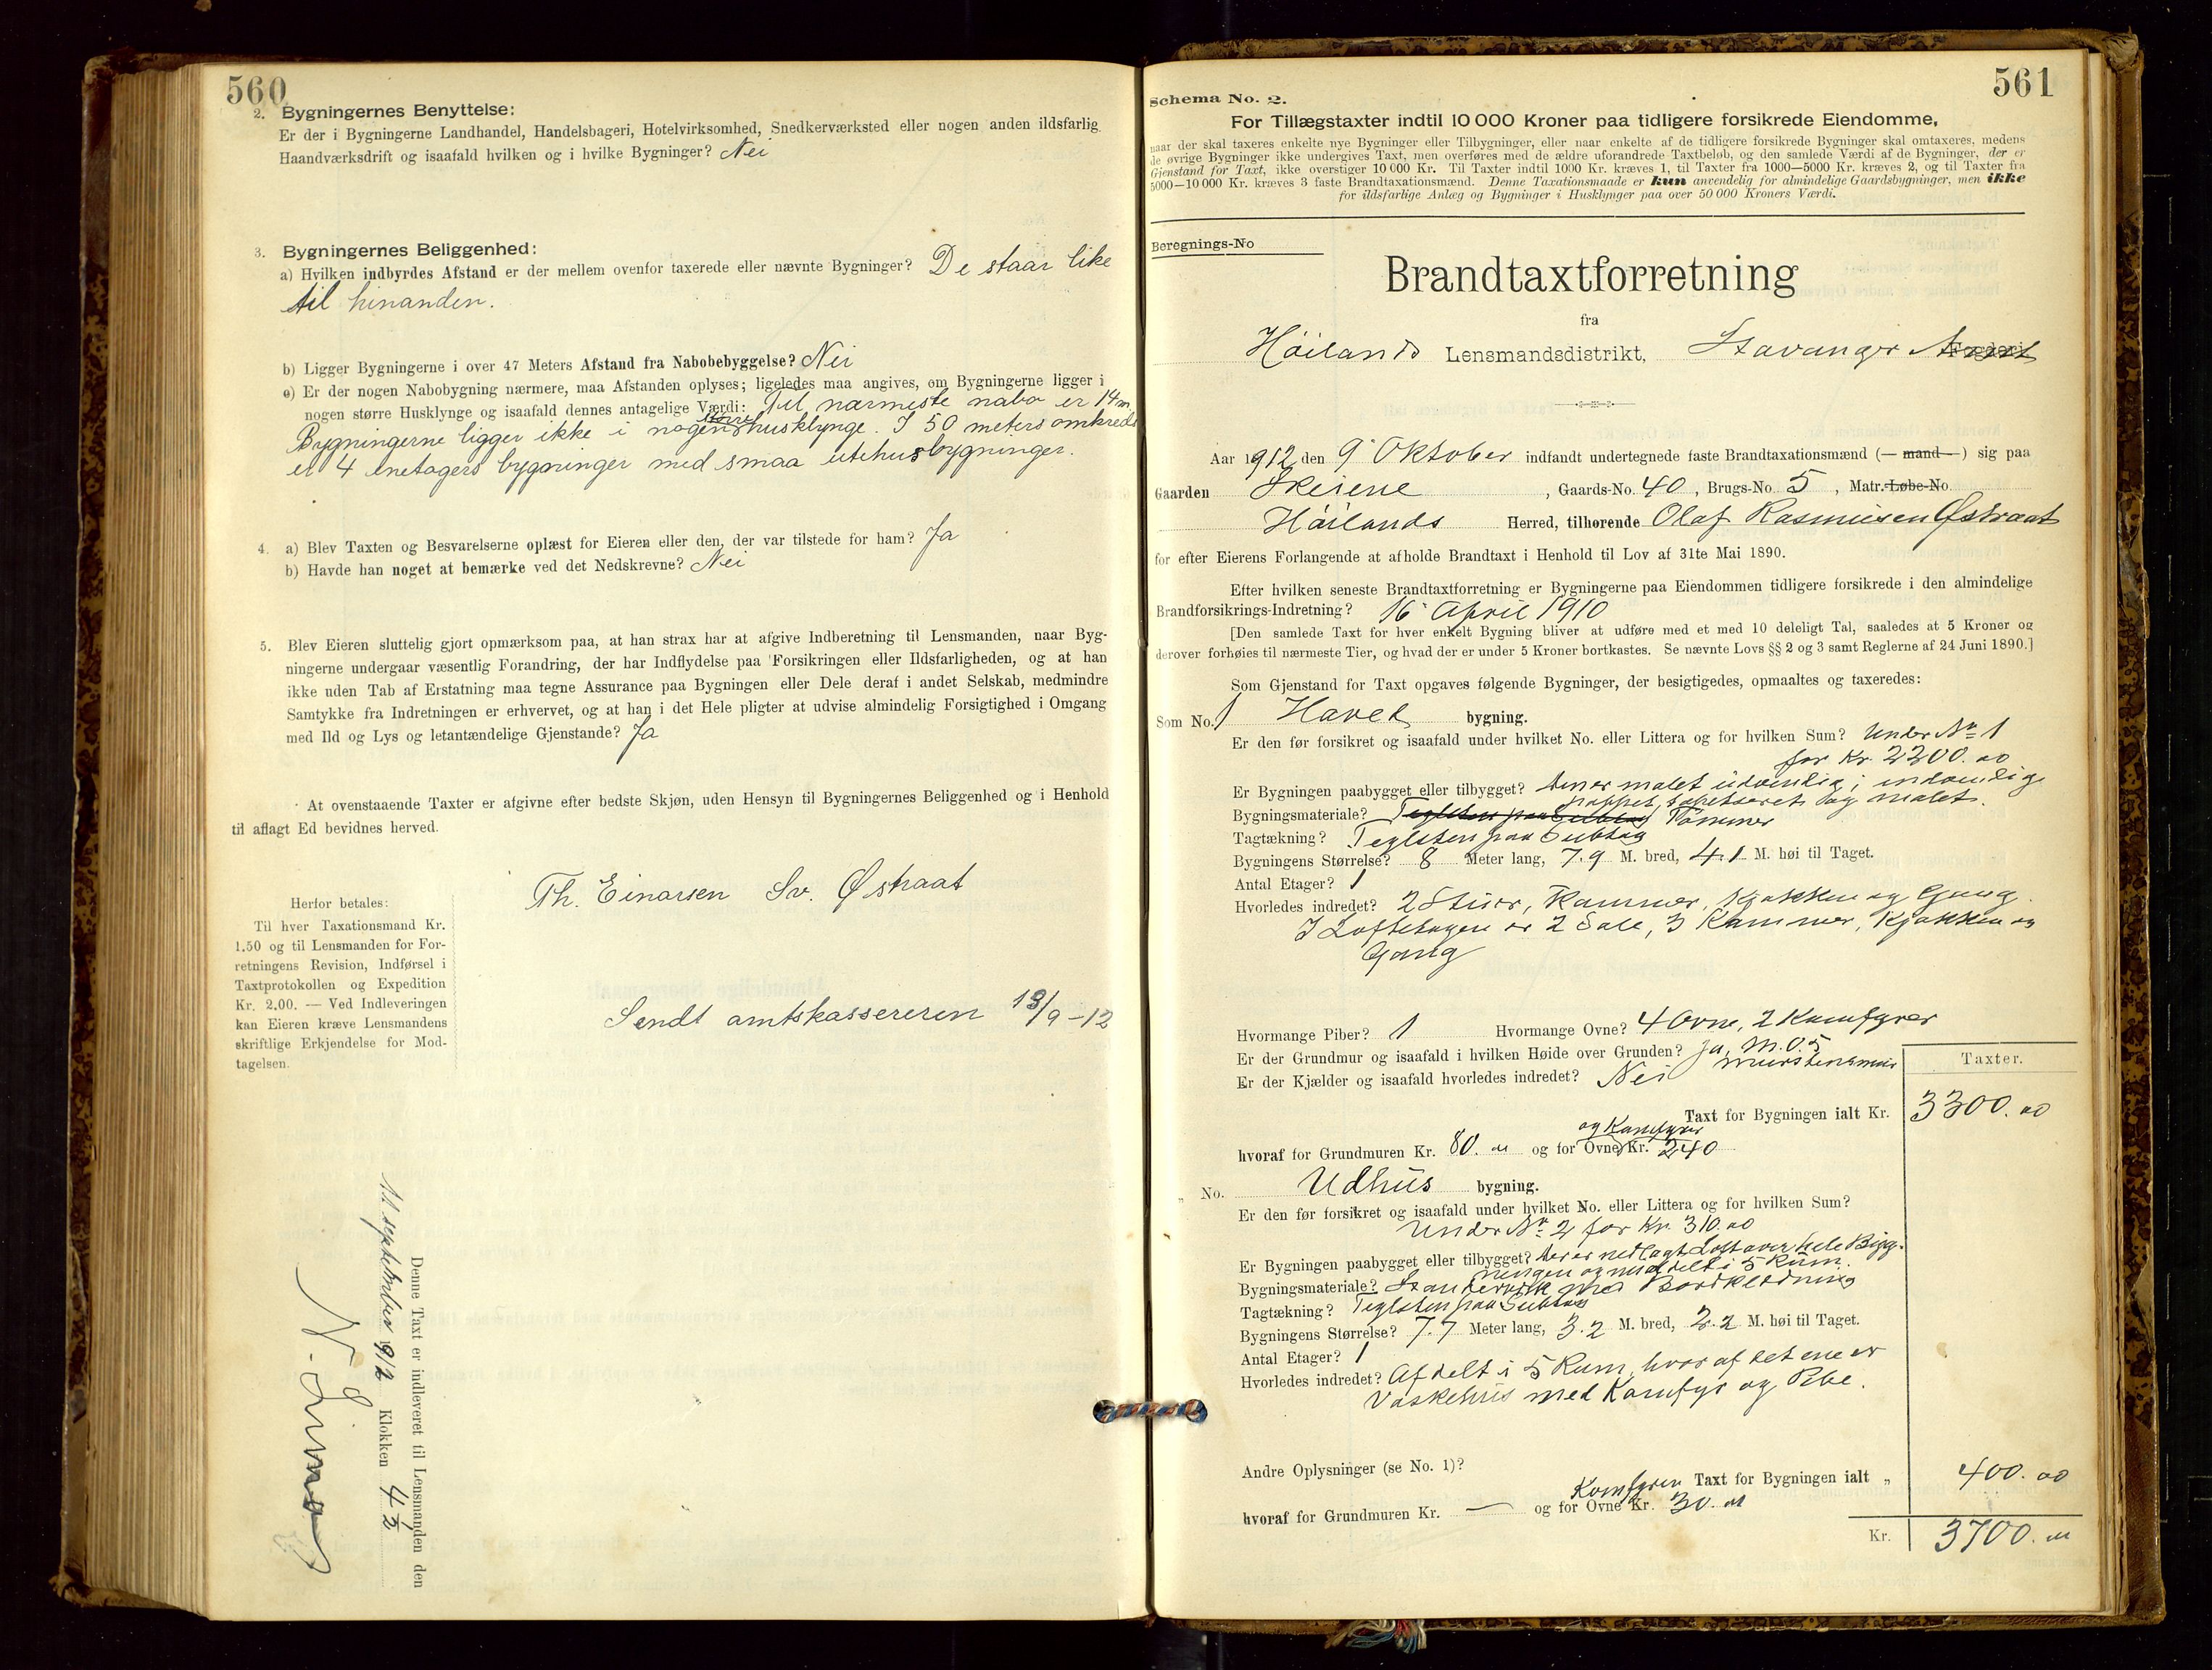 560
2. Bygningernes Benyttelse:
Er der i Bygningerne Landhandel, Handelsbageri, Hotelvirksomhed, Snedkerværksted eller nogen anden ildsfarlig
Haandværksdrift og isaafald hvilken og i hvilke Bygninger? Nei
3. Bygningernes Beliggenhed:
a) Hvilken indbyrdes Afstand er der mellem ovenfor taxerede eller nævnte Bygninger? De staar like
til hinanden.
b) Ligger Bygningerne i over 47 Meters Afstand fra Nabobebyggelse? Nei
c) Er der nogen Nabobygning nærmere, maa Afstanden oplyses; ligeledes maa angives, om Bygningerne ligger i
nogen større Husklynge og isaafald dennes antagelige Værdi: Til nærmeste nabo er 14 m
Bygningerne ligger ikke i nogen større husklynge. I 50 meters omkreds
er 4 enetagers bygninger med smaa utehusbygninger.
4. a) Blev Taxten og Besvarelserne oplæst for Eieren eller den, der var tilstede for ham? Ja
b) Havde han noget at bemærke ved det Nedskrevne? Nei
5. Blev Eieren sluttelig gjort opmærksom paa, at han strax har at afgive Indberetning til Lensmanden, naar Byg-
ningerne undergaar væsentlig Forandring, der har Indflydelse paa Forsikringen eller Ildsfarligheden, og at han
ikke uden Tab af Erstatning maa tegne Assurance paa Bygningen eller Dele deraf i andet Selskab, medmindre
Samtykke fra Indretningen er erhvervet, og at han i det Hele pligter at udvise almindelig Forsigtighed i Omgang
med Ild og Lys og letantændelige Gjenstande? Ja
At ovenstaaende Taxter er afgivne efter bedste Skjøn, uden Hensyn til Bygningernes Beliggenhed og i Henhold
til aflagt Ed bevidnes herved.
Th. Einarsen Sv. Østraat
Herfor betales:
Til hver Taxationsmand Kr.
1.50 og til Lensmanden for For-
retningens Revision, Indførsel i
Taxtprotokollen og Expedition
Kr. 2.00. — Ved Indleveringen
kan Eieren kræve Lensmandens
skriftlige Erkjendelse for Mod-
tagelsen.
Sendt amtskassereren 13/9-12
Denne Taxt er indleveret til Lensmanden den
11 september 1912 Klokken 4 1/2
561
Schema No. 2.
For Tillægstaxter indtil 10 000 Kroner paa tidligere forsikrede Eiendomme,
naar der skal taxeres enkelte nye Bygninger eller Tilbygninger, eller naar enkelte af de tidligere forsikrede Bygninger skal omtaxeres, medens
de øvrige Bygninger ikke undergives Taxt, men overføres med de ældre uforandrede Taxtbeløb, og den samlede Værdi af de Bygninger, der er
Gjenstand for Taxt, ikke overstiger 10 000 Kr. Til Taxter indtil 1000 Kr. kræves 1, til Taxter fra 1000—5000 Kr. kræves 2, og til Taxter fra
5000—10 000 Kr. kræves 3 faste Brandtaxationsmænd. Denne Taxationsmaade er kun anvendelig for almindelige Gaardsbygninger, men ikke
for ildsfarlige Anlæg og Bygninger i Husklynger paa over 50 000 Kroners Værdi.
Beregnings-No
Brandtaxtforretning
fra
Høilands Lensmandsdistrikt, Stavanger Fogderi
Aar 1912 den 9 Oktober indfandt undertegnede faste Brandtaxationsmænd (— mand —) sig paa
Gaarden Skeiene, Gaards-No. 40, Brugs-No. 5, Matr.-Løbe-No.
Høilands Herred, tilhørende Olaf Rasmussen Østraat
for efter Eierens Forlangende at afholde Brandtaxt i Henhold til Lov af 31te Mai 1890.
Efter hvilken seneste Brandtaxtforretning er Bygningerne paa Eiendommen tidligere forsikrede i den almindelige
Brandforsikrings-Indretning? 16 April 1910
[Den samlede Taxt for hver enkelt Bygning bliver at udføre med et med 10 deleligt Tal, saaledes at 5 Kroner og
derover forhøies til nærmeste Tier, og hvad der er under 5 Kroner bortkastes. Se nævnte Lovs §§ 2 og 3 samt Reglerne af 24 Juni 1890.]
Som Gjenstand for Taxt opgaves følgende Bygninger, der besigtigedes, opmaaltes og taxeredes:
Som No. 1 Hoved bygning.
Er den før forsikret og isaafald under hvilket No. eller Littera og for hvilken Sum? Under No 1
for Kr. 2200.00
Er Bygningen paabygget eller tilbygget? Den er malet udvendig; indvendig
pappet, tapetseret og malet.
Bygningsmateriale? Teglsten paa Subtag Tømmer
Tagtækning? Teglsten paa Subtag
Bygningens Størrelse? 8 Meter lang, 7.9 M. bred, 4.1 M. høi til Taget.
Antal Etager? 1
Hvorledes indredet? 2 Stuer, Kammer, Kjøkken og Gang.
I Loftetagen er 2 Sale, 3 Kammer, Kjøkken og
Gang
Hvormange Piber? 1 Hvormange Ovne? 4 Ovne, 2 Komfyrer
Er der Grundmur og isaafald i hvilken Høide over Grunden? Ja, M. 0.5
murstensmur
Er der Kjælder og isaafald hvorledes indredet? Nei
Taxter.
Taxt for Bygningen ialt Kr. 3300.00
og Komfyrer
hvoraf for Grundmuren Kr. 80.00 og for Ovne Kr. 240
„ No. Udhus bygning.
Er den før forsikret og isaafald under hvilket No. eller Littera og for hvilken Sum?
Under No 2 for Kr. 310.00
Er Bygningen paabygget eller tilbygget? Der er nedlagt Loft over hele Byg-
ningen og inddelt i 5 Rum.
Bygningsmateriale? Standerværk med Bordklædning
Tagtækning? Teglsten paa Subtag
Bygningens Størrelse? 7.7 Meter lang, 3.2 M. bred, 2.2 M. høi til Taget.
Antal Etager? 1
Hvorledes indredet? Afdelt i 5 Rum, hvoraf det ene er
Vaskehus med Komfyr og Pibe.
Andre Oplysninger (se No. 1)?
Komfyren Taxt for Bygningen ialt „ 400.00
hvoraf for Grundmuren Kr. — og for Ovne Kr. 30.00
Kr. 3700.00